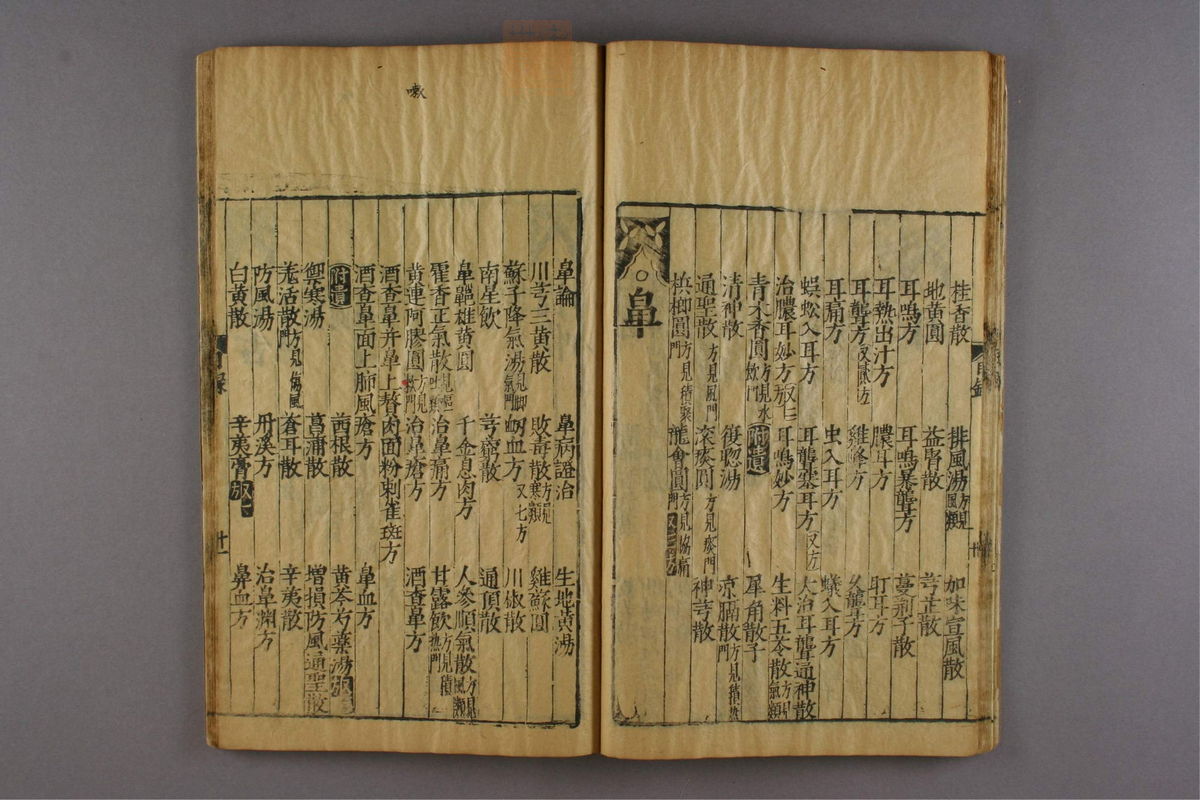 桂香散 排風湯方見風類 加味宣風散
地黃圓 益腎散 芎芷散
耳鳴方 耳鳴暴聾方 蔓荊子散
耳熱出汁方 膿耳方 耵耳方
耳聾方又貳方 雞峰方 久聾方
耳痛方 虫入耳方 蟻入耳方
蜈蚣入耳方 耳聾塞耳方又方 大治耳聾通神散
治膿耳妙方放七 耳鳴妙方 生料五苓散方見氣類
青木香圓方見水歙門 附遺 犀角散子
清神散 復聦湯 凉膈散方見積熱門
通聖散方見風門 滾痰圓方見痰門 神芎散
梹榔圓方見積聚門 龍會圓方見脇痛門又三方
○鼻
目錄
鼻論 鼻病證治 生地黃湯
川芎三黃散 敗毒散方見寒類 雞蘇圓
蘇子降氣湯見脚氣門 衂血方又七方 川椒散
南星飲 芎藭散 通頂散
鼻齆雄黃圓 千金息肉方 人參順氣散方見風類
藿香正氣散 治鼻痛方 甘露飲方見積熱門
黃連阿膠圓方見歙門 治鼻瘡方 酒查鼻方
酒查鼻并鼻上贅肉面粉刺雀斑方
酒查鼻面上肺風瘡方 鼻血方
附遺 茜根散 黃芩芍藥湯放
禦寒湯 菖蒲散 增損防風通聖散
羌活散方見傷風門 蒼耳散 辛夷散
防風湯 丹溪方 治鼻淵方
白黃散 辛夷膏放七 鼻血方
目錄
廿一